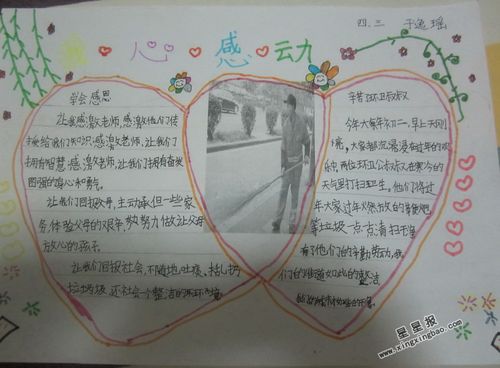 四.三 于逸瑶
心 感动
学会感恩
让我感激老师,感激他们传
授给我们知识;感激老师,让我们
拥有智慧;感激老师,让我们拥有奋发
图强的雄心和勇气。
让我们回报父母,主动承担一些家
务,体验父母的艰辛,努力做让父母
放心的孩子。
让我们回报社会,不随地吐痰、乱扔
垃圾,还社会一个整洁的环境
辛苦环卫叔叔
今年大年初二,早上天刚
亮,大家都沉浸在过年的欢
乐中,两位环卫公叔叔在寒冷的
天气里打扫卫生。他们将过
年大家过年燃放的鞭炮
等垃圾一点点清扫干净
有了他们的辛勤劳动,我
们的街道如此的整洁
星星报
www.xingxingbao.com